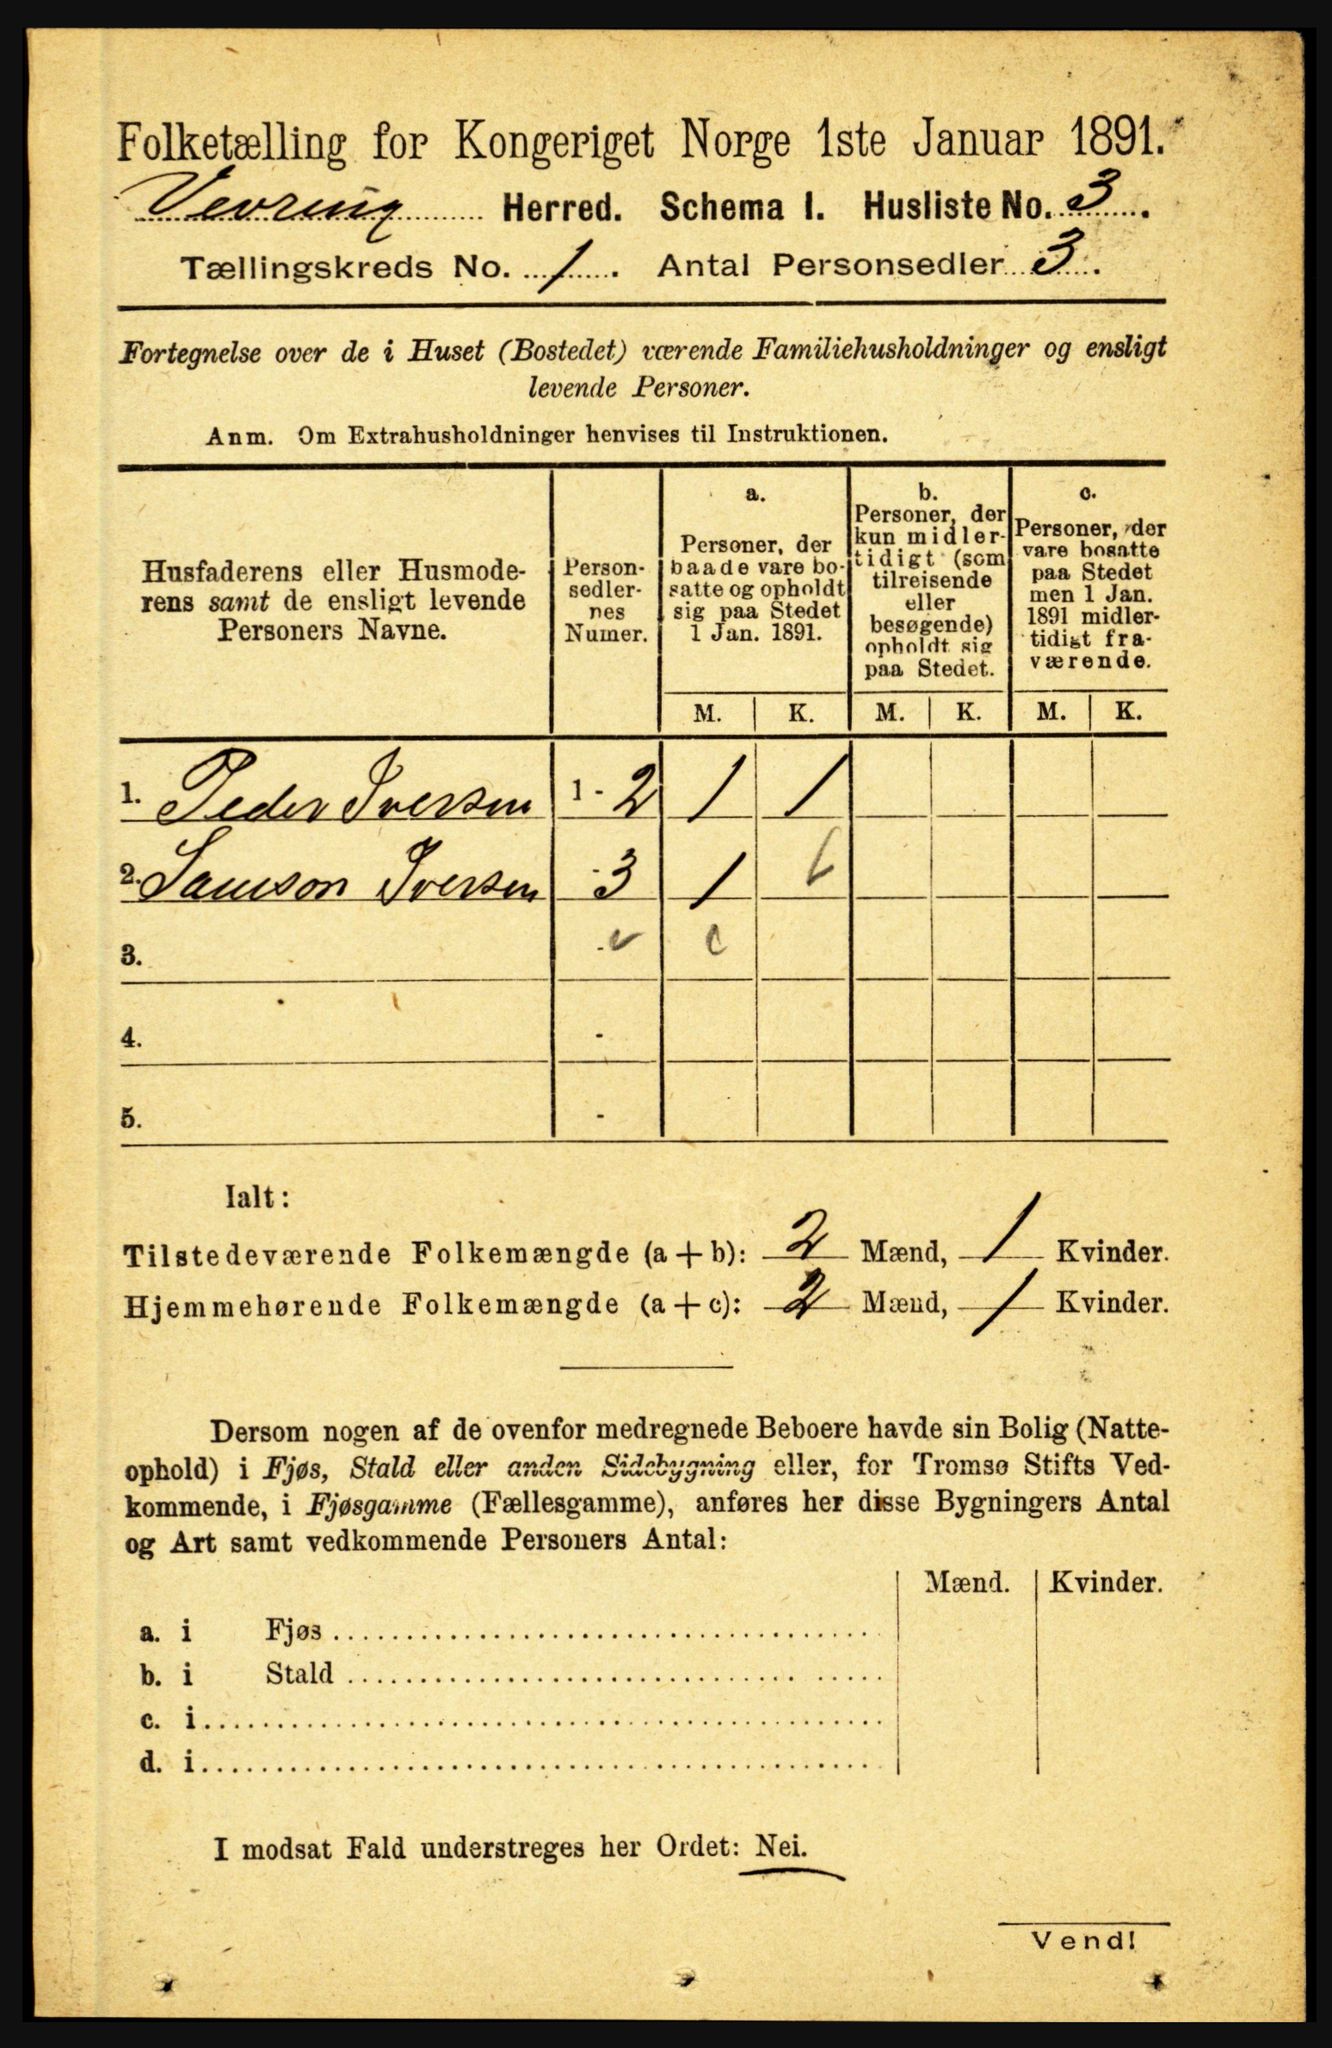 Folketælling for Kongeriget Norge 1ste Januar 1891.
Vevring Herred. Schema 1. Husliste No. 3.
Tællingskreds No. 1. Antal Personsedler 3.
Fortegnelse over de i Huset (Bostedet) værende Familiehusholdninger og ensligt
levende Personer.
Anm. Om Extrahusholdninger henvises til Instruktionen.
Husfaderens eller Husmode-
rens samt de ensligt levende
Personers Navne.
Person-
sedler-
nes
Numer.
a.
Personer, der
baade vare bo-
satte og opholdt
sig paa Stedet
1 Jan. 1891.
b.
Personer, der
kun midler-
tidigt (som
tilreisende
eller
besøgende)
opholdt sig
paa Stedet.
c.
Personer, der
vare bosatte
paa Stedet
men 1 Jan.
1891 midler-
tidigt fra-
værende.
M. K. M. K. M. K.
1. Peder Iversen 1 - 2 1 1
2. Samson Iversen - 3 1
3.
4. -
5. -
Ialt:
Tilstedeværende Folkemængde (a + b): 2 Mænd, 1 Kvinder.
Hjemmehørende Folkemængde (a + c): 2 Mænd, 1 Kvinder.
Dersom nogen af de ovenfor medregnede Beboere havde sin Bolig (Natte-
ophold) i Fjøs, Stald eller anden Sidebygning eller, for Tromsø Stifts Ved-
kommende, i Fjøsgamme (Fællesgamme), anføres her disse Bygningers Antal
og Art samt vedkommende Personers Antal:
Mænd. Kvinder.
a. i Fjøs
b. i Stald
c. i
d. i
I modsat Fald understreges her Ordet: Nei.
Vend!